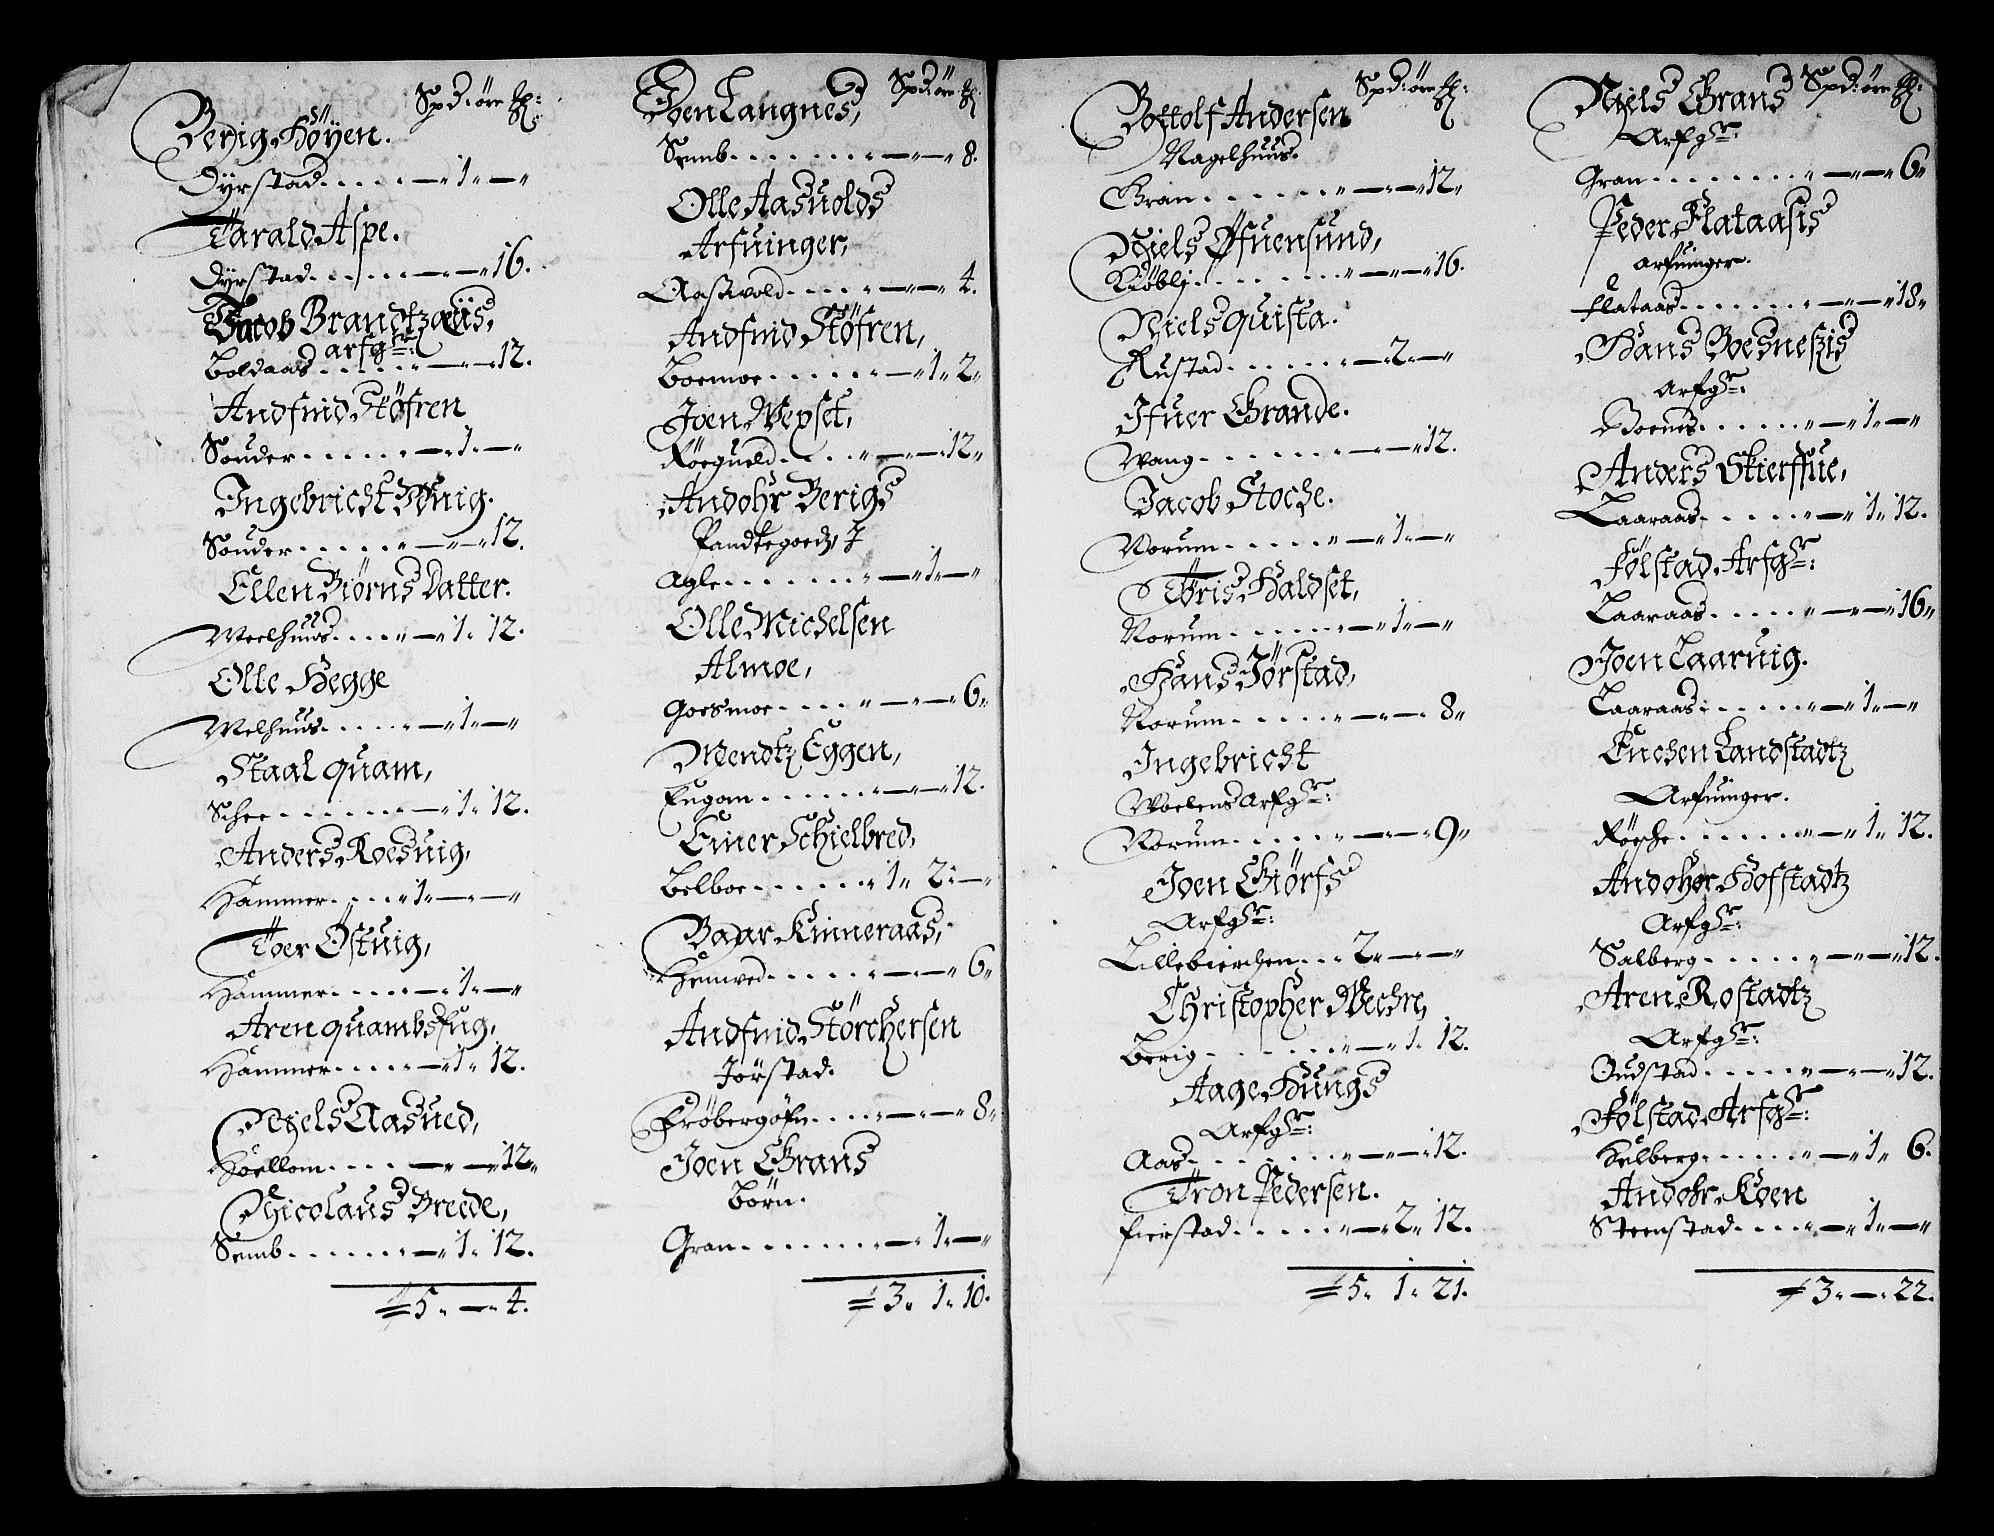 Spd: öre
Berig Höÿen.
Dyrstad. . . . . " — " 1 " — "
Tarald Aspe.
Dyrstad. . . . . . " — " — " 16.
Jacob Brandtzaüs,
arfgr:
Boldaas. . . . . . " — " — " 12.
Andfind Stöfren
Sonder. . . . . . " — " 1 " — "
Ingebricht Fönig.
Sonder. . . . . " — " — " 12.
Ellen Biörns Datter.
Weelhuus. . . . " — " 1 " 12.
Olle Hegge
Welhuus. . . . . " — " 1 " — "
Staal quam,
Schee. . . . . . . " — " 1 " 12.
Anders Roesuig,
Hammer. . . . " 1 " — " — "
Toer Östuig,
Hammer. . . . . " — " 1 " — "
Aren quambsfug,
Hammer. . . . . " — " 1 " 12.
Niels Aasued,
Höellom. . . . " — " — " 12 "
Nicolaus Breede,
Semb. . . . . . . " — " 1 " 12.
5 " — " 4.
Spd: öre
Joen Langnes,
Semb. . . . . . . . " — " — " 8.
Olle Aasuolds
Arfuinger,
Aasuold. . . . . " — " — " 4.
Andfind Stöfren,
Boemoe. . . . . . " — " 1 " 2 "
Joen Wepset,
Röegueld. . . . " — " — " 12 "
Andohr Berigs
Pandtegoedz, J
Agle. . . . . . . . " — " 1 " — "
Olle Michelsen
Almoe,
Goesmoe. . . . . " — " — " 6 "
Mendtz Eggen,
Eugom. . . . . . . " — " — " 12.
Einer Schielbred,
Belboe. . . . . . . " 1 " 2 " — "
Baar Kinneraas,
Hemved. . . . . . " — " — " 6 "
Andfind Störchersen
Jörstad.
Fröbergöfn. . . . " — " — " 8 "
Joen Grans
Börn.
Gran. . . . . . . . " — " 1 " — "
3 " 1 " 10.
Spd: öre
Bottolf Andersen
Nagelhuus.
Gran. . . . . . . . " — " — " 12 "
Niels Öfuensund,
Kiöblj. . . . . . . . " — " — " 16.
Niels quista.
Rustad. . . . . . . " — " 2 " — "
Ifuer Grande.
Wang. . . . . . . . " — " — " 12.
Jacob Stoche.
Norum. . . . . . " — " 1 " — "
Töris Haldset,
Norum. . . . . . . " — " 1 " — "
Hans Jörstad,
Norum. . . . . . " — " — " 8 "
Ingebricht
Woelens Arfgr:
Norum. . . . . . " — " — " 9 "
Joen Giörfs
Arfgr:
Lillebierchen. . . 2 " — " — "
Christopher Wechre,
Berig. . . . . . . . " — " 1 " 12.
Aage Hungs
Arfgr:
Aas. . . . . . . . . " — " — " 12.
Tron Pedersen.
Fierstad. . . . . . " — " 2 " 12.
5 " 1 " 21.
Spd: öre
Niels Grans
Arfgr:
Gran. . . . . . . . . " — " — " 6 "
Peder Flataasis
arfuinger.
Flataas. . . . . . . " — " — " 18 "
Hans Boesneszis
Arfgr:
Boenes. . . . . . " — " 1 " — "
Anders Skierffue,
Laaraas. . . . . . " — " 1 " 12.
Fölstad Arfgr:
Laaraas. . . . . . " — " — " 16 "
Joen Laaruig.
Laaraas. . . . . . " — " 1 " — "
Enchen Landstadtz
Arfuinger.
Rörche. . . . . . . " — " 1 " 12.
Andohor Hofstadtz
Arfgr:
Salberg. . . . . . " — " — " 12.
Aren Rostadtz
Arfgr:
Oudstad. . . . . . " — " — " 12.
Fölstad Arfgr:
Helberg. . . . . . . " — " 1 " 6.
Andohr Koen
Steenstad. . . . . " — " 1 " — "
3 " — " 22.